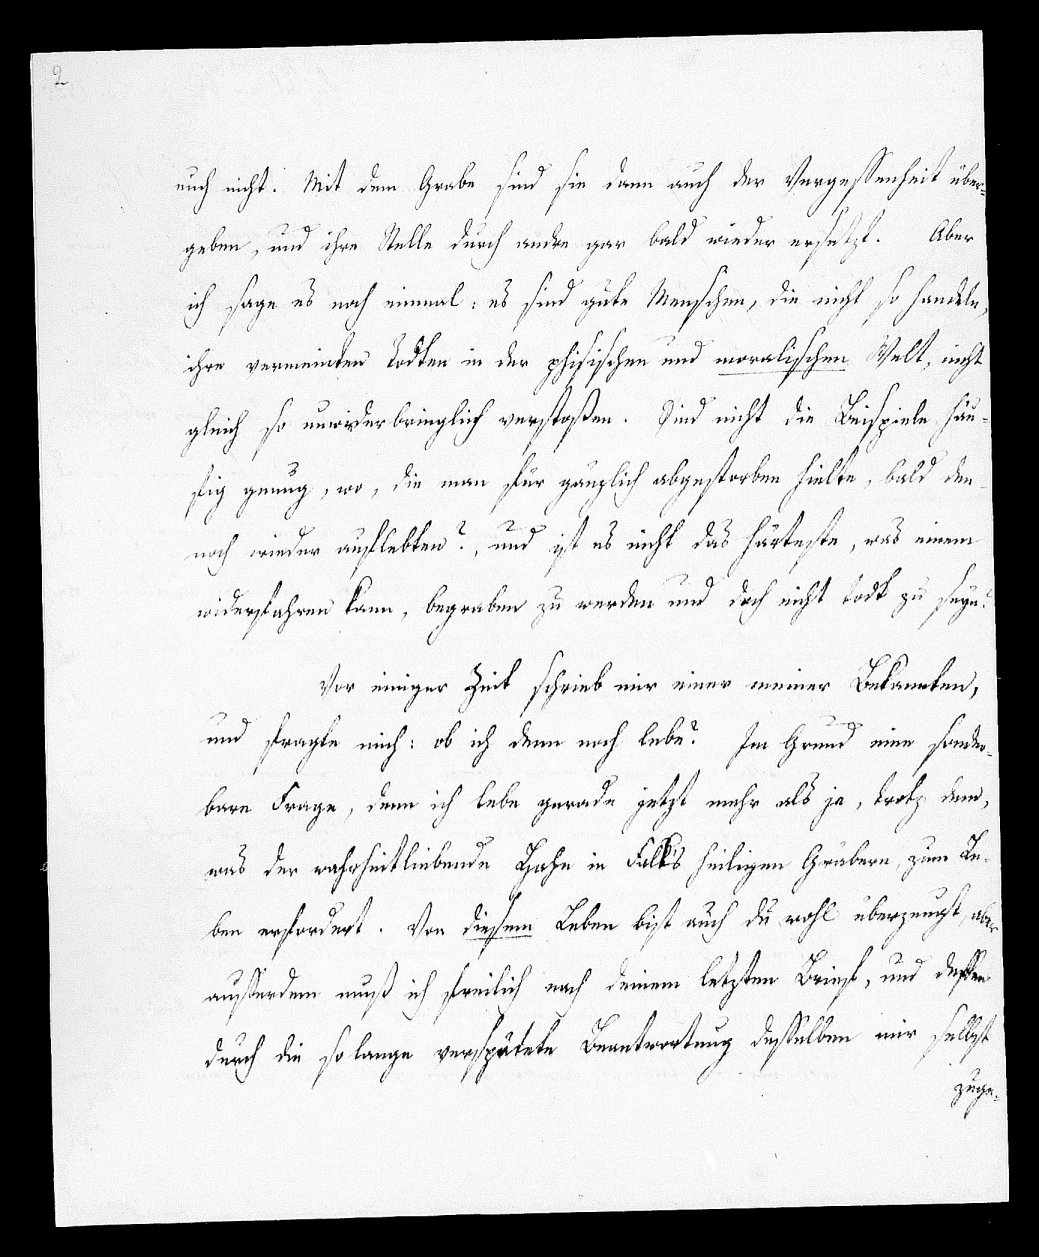 2
auch nicht. Mit dem Grabe sind sie dann auch der Vergessenheit über-
geben, und ihre Stelle durch andre gar bald wieder ersetzt. Aber
ich sage es noch einmal: es sind gute Menschen, die nicht so handeln,
ihre vermeinten Todten in der phisischen und moralischen Welt, nicht
gleich so unwiderbringlich verstoßen. Sind nicht die Beispiele häu-
fig genug, wo, die man für gänzlich abgestorben hielte, bald den-
noch wieder auflebten?, und ist es nicht das härteste, was einem
widerfahren kann, begraben zu werden und doch nicht todt zu seyn?
Vor einiger Zeit schrieb mir einer meiner Bekannten,
und fragte mich: ob ich denn noch lebe? Im Grund eine sonder-
bare Frage, denn ich lebe gerade jetzt mehr als je, trotz dem,
was der wahrheitliebende Hahn in Falks heiligen Gräbern, zum Le-
ben erfordert. Von diesem Leben bist auch du wohl überzeugt, aber
ausserdem muß ich freilich nach deinem letzten Brief, und dessen
durch die so lange verspätete Beantwortung desselben mir selbst
zuge-